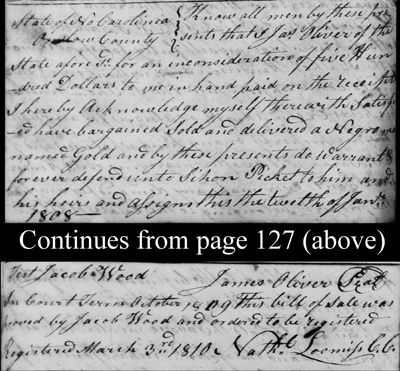 State of No Carolinea
Onslow County
Know all men by these pre
sents that I Jas Oliver of the
State afore sd for an inconsideration of five Hun
dred Dollars to me in hand paid on the receipt
I hereby Acknowledge myself therewith Satisfi
-ed have bargained Sold and delivered a Negro man
named Gold and by these presents do warrant &
forever defend unto Sihon Picket to him and
his heirs and assigns this the twelth of Jany
1808
Continues from page 127 (above)
Test Jacob Wood James Oliver Seal
In Court Term October 1809 This bill of Sale was
proved by Jacob Wood and ordered to be registered
Registered March 3rd 1810 Nathl Loomiss C.C.